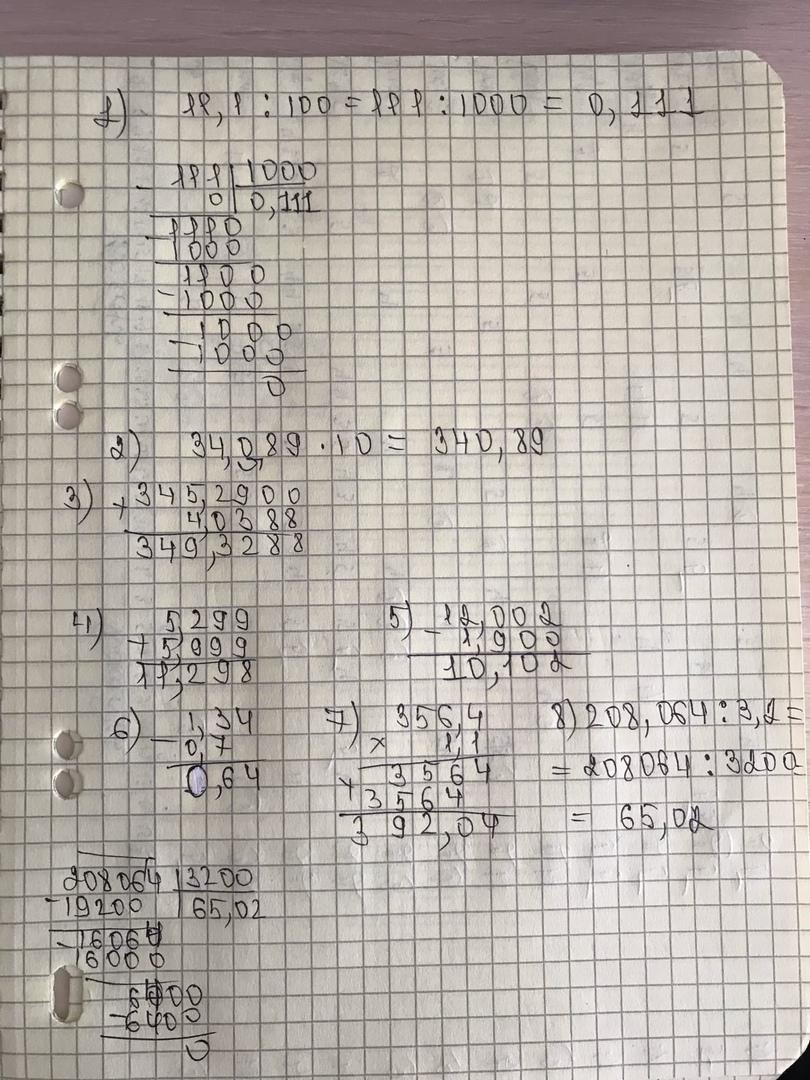 1) 11,1 : 100 = 111 : 1000 = 0,111
- 111 | 1000
0 | 0,111
- 1110
1000
- 1100
1000
- 1000
1000
0
2) 34,0,89 · 10 = 340,89
3) + 345,2900
4,0388
349,3288
4) + 5,299
5,999
11,298
5) - 12,002
1,900
10,102
6) - 1,34
0,7
0,64
7) × 356,4
1,1
+ 3564
3564
392,04
8) 208,064 : 3,2 =
= 208064 : 3200
= 65,02
- 208064 | 3200
19200 | 65,02
- 16064
16000
- 6400
6400
0